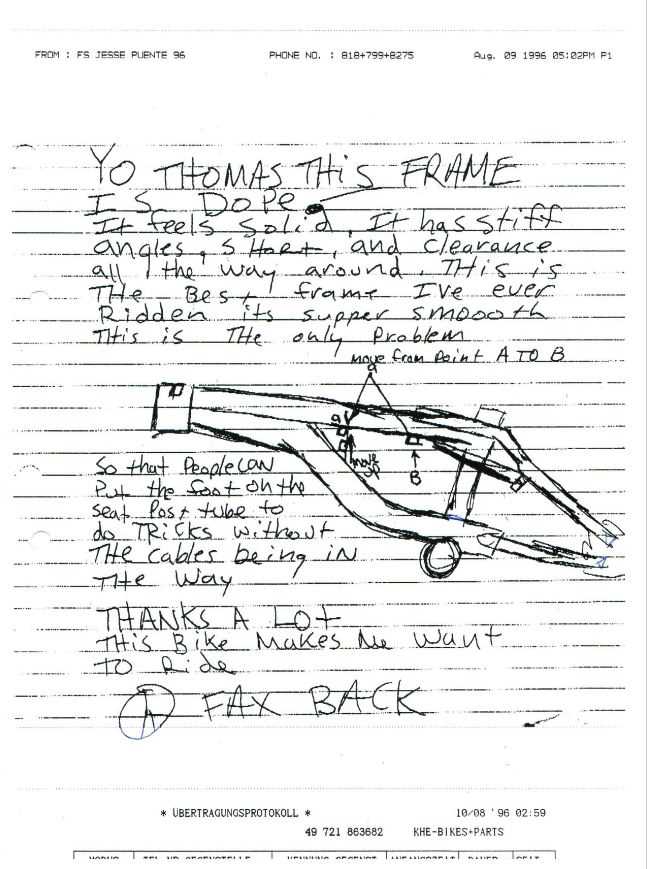 FROM : FS JESSE PUENTE 96 PHONE NO. : 818+799+8275 Aug. 09 1996 05:02PM P1
YO THOMAS THIS FRAME
IS DOPE
It feels solid, It has stiff
angles, SHort, and clearance
all the way around. THis is
THe Best frame I've ever
Ridden its supper smoooth
THis is THe only Problem
move from Point A TO B
a
a
move
up
B
So that People CAN
Put the foot on the
seat Post tube to
do TRicks without
THe cables being in
THe way
THANKS A LOT
THis Bike Makes Me want
TO Ride
A FAX BACK
* ÜBERTRAGUNGSPROTOKOLL * 10/08 '96 02:59
49 721 863682 KHE-BIKES+PARTS
MODUS TEL-NR GEGENSTELLE KENNUNG GEGENST ANFANGSZEIT DAUER SEIT